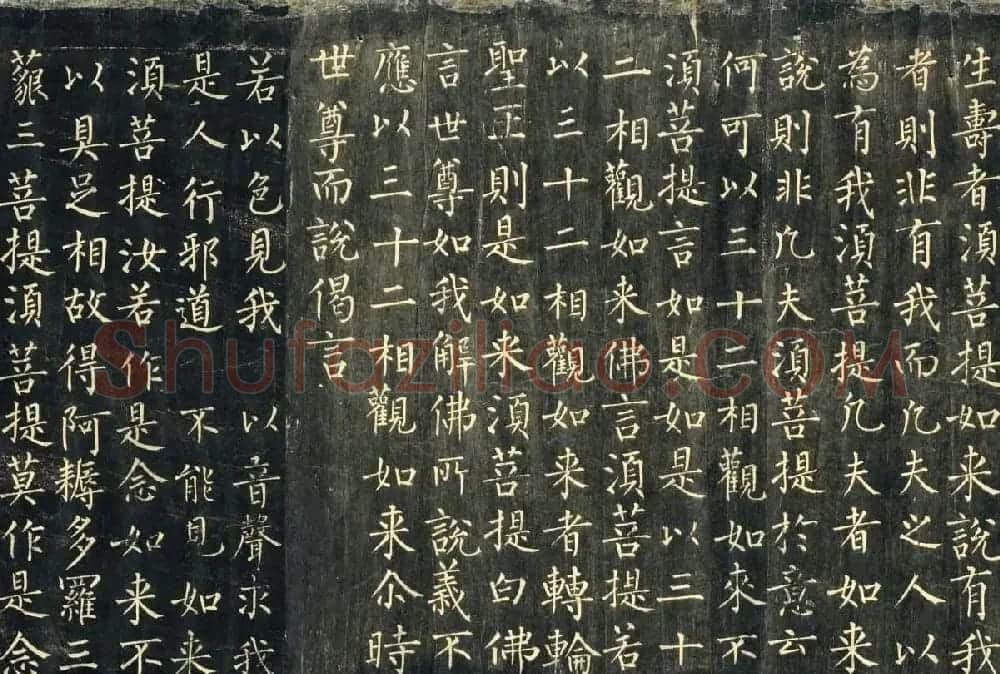 生壽者須菩提如来說有我
者則非有我而凡夫之人以
為有我須菩提凡夫者如来
說則非凡夫須菩提於意云
何可以三十二相觀如來不
須菩提言如是如是以三十
二相觀如来佛言須菩提若
以三十二相觀如来者轉輪
聖王則是如来須菩提白佛
言世尊如我解佛所說義不
應以三十二相觀如来尒時
世尊而說偈言
若以色見我 以音聲求我
是人行邪道 不能見如来
須菩提汝若作是念如来不
以具足相故得阿耨多羅三
藐三菩提須菩提莫作是念
Shufaziliao.COM